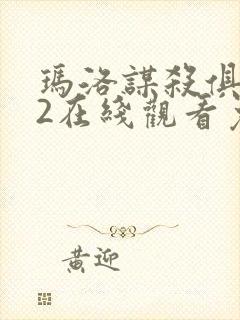 瑪洛謀殺俱
2在綫觀看
黃迎